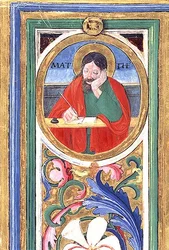 MAT TH